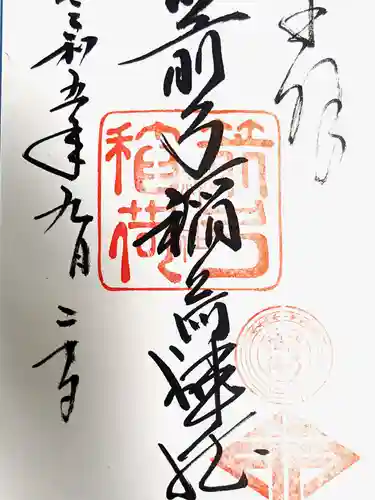 奉拝
箭弓稲荷神社
箭弓稲荷
令和五年九月二十日